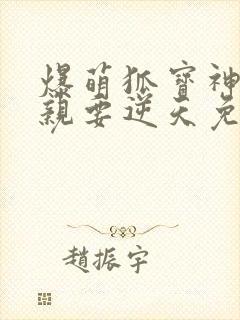 爆萌狐寶神
親要逆天免
趙振宇